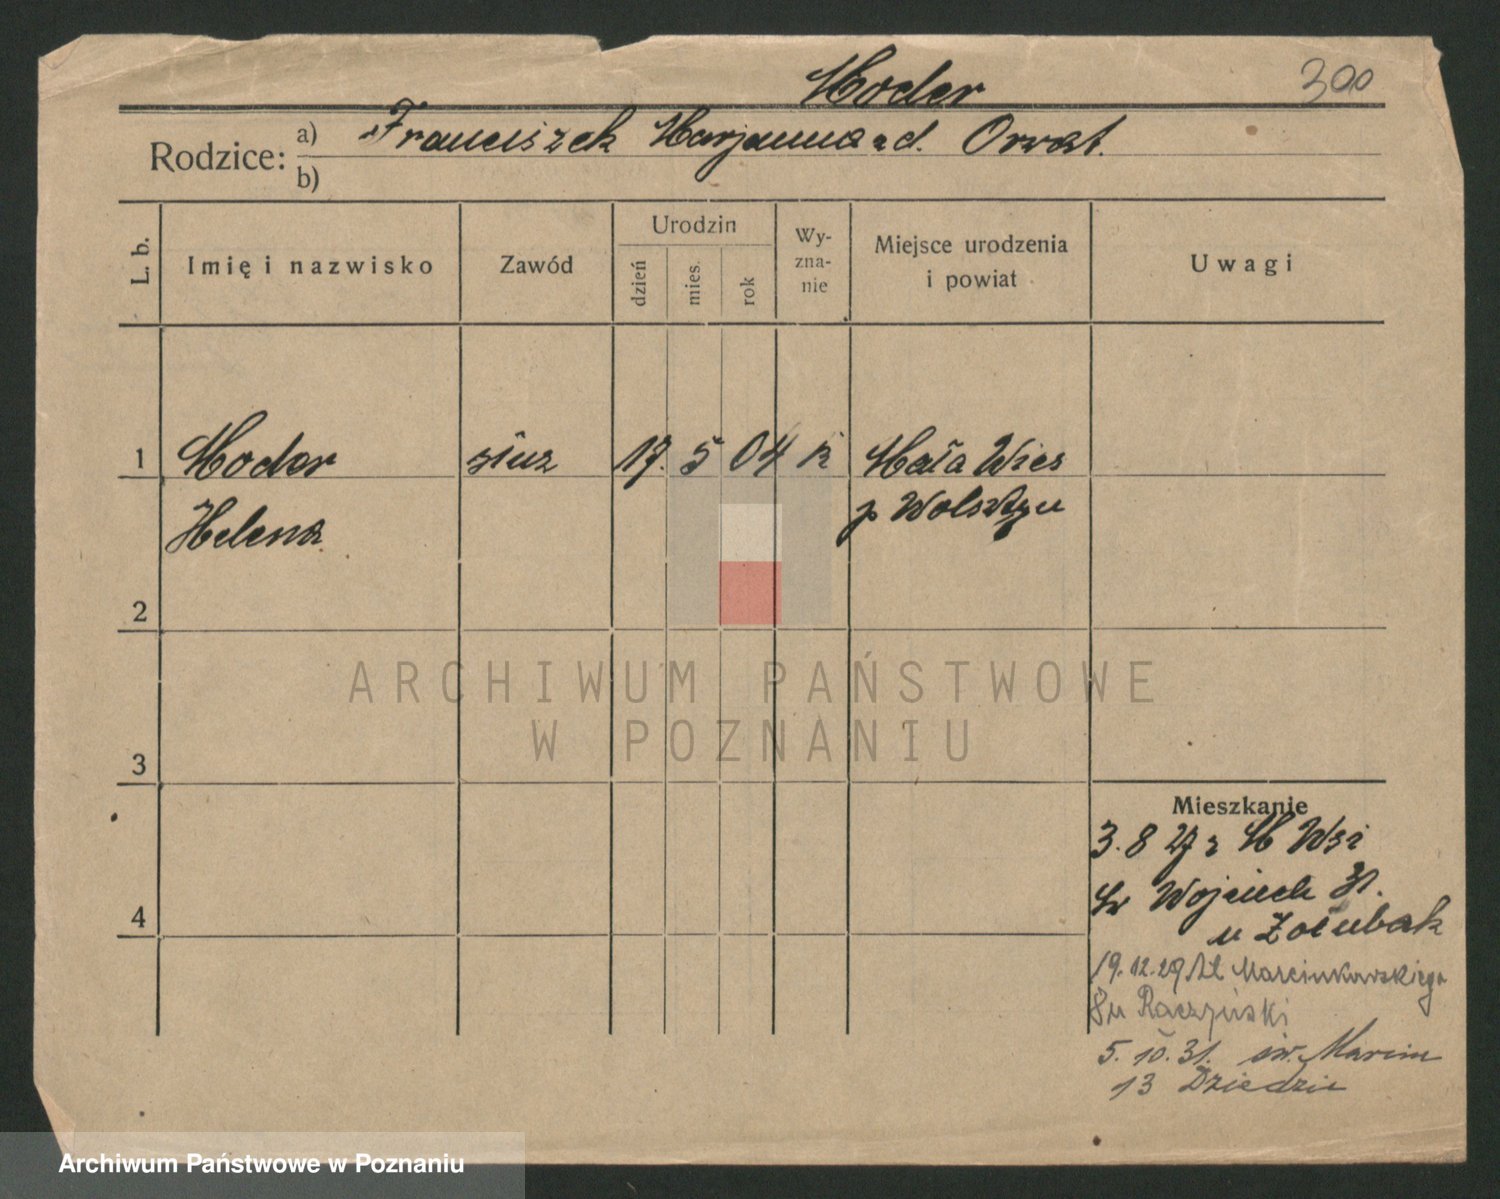 Moder
300
Rodzice:
a) Franciszek Marjanna z d. Orwat.
b)
L. b.
Imię i nazwisko
Zawód
Urodzin
dzień
mies.
rok
Wy-
zna-
nie
Miejsce urodzenia
i powiat
Uwagi
1 Moder służ 17. 5 04 k Mała Wieś
Helena p Wolsztyn
2
3
4
ARCHIWUM PAŃSTWOWE
W POZNANIU
Mieszkanie
3.8 27 z M Wsi
św Wojciech 31.
u
19.12.29 Al Marcinkowskiego
8 u Raczyński
5. 10. 31. św. Marcin
13
Archiwum Państwowe w Poznaniu